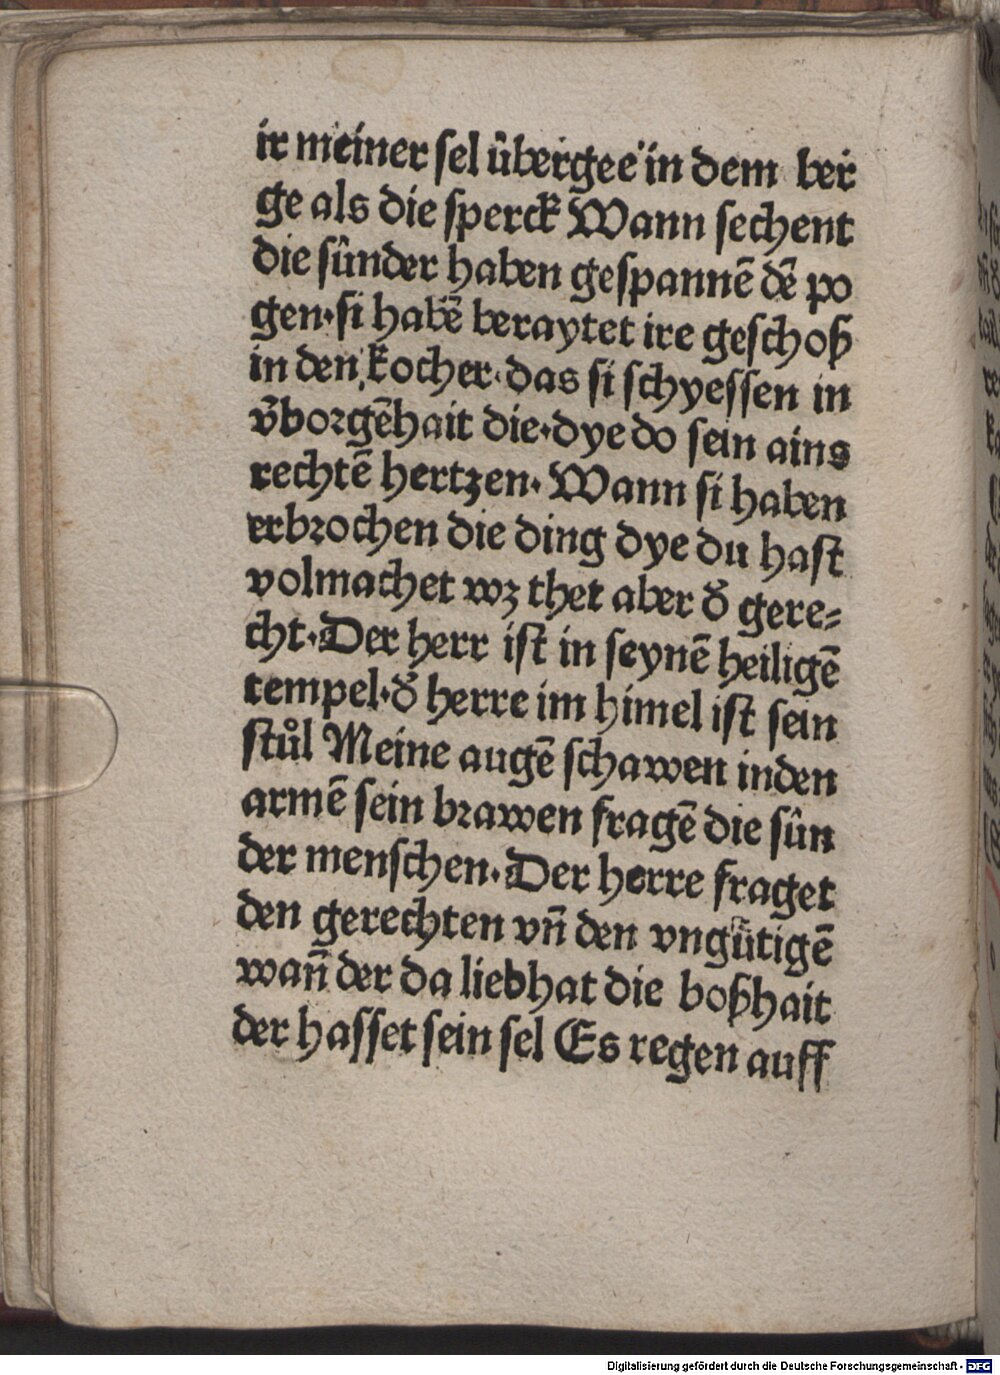 ir meiner sel übergee in dem ber
ge als die sperck Wann sechent
die sünder haben gespannē dē po
gen·si habē beraytet ire geschoß
in den kocher·das si schyessen in
v̄borgēhait die·dye do sein ains
rechtē hertzen·Wann si haben
erbrochen die ding dye du hast
volmachet wz thet aber d̄ gere=
cht·Der herr ist in seynē heiligē
tempel·d̄ herre im himel ist sein
stůl Meine augē schawen inden
armē sein brawen fragē die sün
der menschen·Der herre fraget
den gerechten vn̄ den vngütigē
wan̄ der da liebhat die boßhait
der hasset sein sel Es regen auff
Digitalisierung gefördert durch die Deutsche Forschungsgemeinschaft - DFG